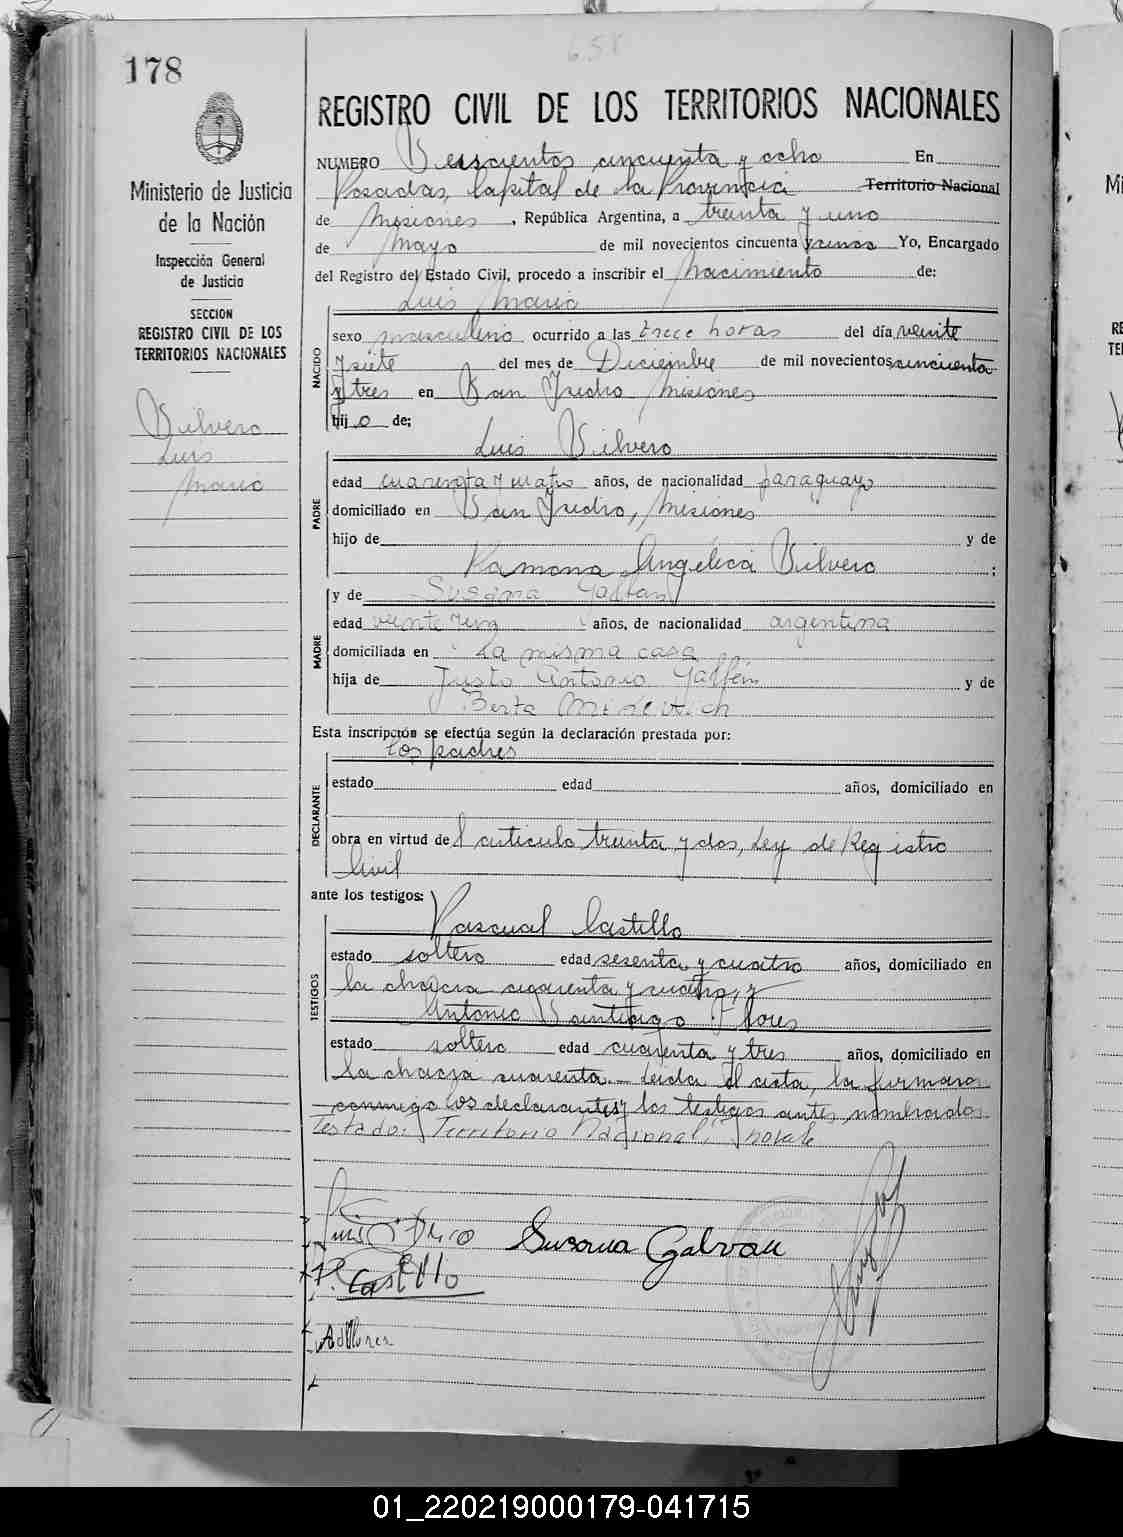 658
178
REGISTRO CIVIL DE LOS TERRITORIOS NACIONALES
Ministerio de Justicia
de la Nación
Inspección General
de Justicia
SECCION
REGISTRO CIVIL DE LOS
TERRITORIOS NACIONALES
Silvero
Luis
Mario
NUMERO Seiscientos cincuenta y ocho En
Posadas, Capital de la Provincia Territorio Nacional
de Misiones, República Argentina, a treinta y uno
de Mayo de mil novecientos cincuenta y cinco Yo, Encargado
del Registro del Estado Civil, procedo a inscribir el Nacimiento de:
Luis Mario
NACIDO
sexo masculino ocurrido a las trece horas del día veinte
y siete del mes de Diciembre de mil novecientos cincuenta
y tres en San Pedro Misiones
hijo de:
Luis Silvero
PADRE
edad cuarenta y cuatro años, de nacionalidad paraguayo
domiciliado en San Pedro, Misiones
hijo de y de
Ramona Angélica Silvero ;
MADRE
y de Susana
edad veinte y un años, de nacionalidad argentina
domiciliada en La misma casa
hija de Justo Antonio y de
Berta
Esta inscripción se efectúa según la declaración prestada por:
los padres
DECLARANTE
estado edad años, domiciliado en
obra en virtud del articulo treinta y dos, Ley de Registro
Civil
ante los testigos:
Pascual Castillo
TESTIGOS
estado soltero edad sesenta y cuatro años, domiciliado en
la chacra cuarenta y cuatro, y
Antonio Santiago Flores
estado soltero edad cuarenta y tres años, domiciliado en
la chacra cuarenta.- Leida el acta, la firmaron
conmigo los declarantes y los testigos antes nombrados
Testado: Territorio Nacional, no vale
Susana Galvan
P. Castillo
Mi
RE
TE
01_220219000179-041715